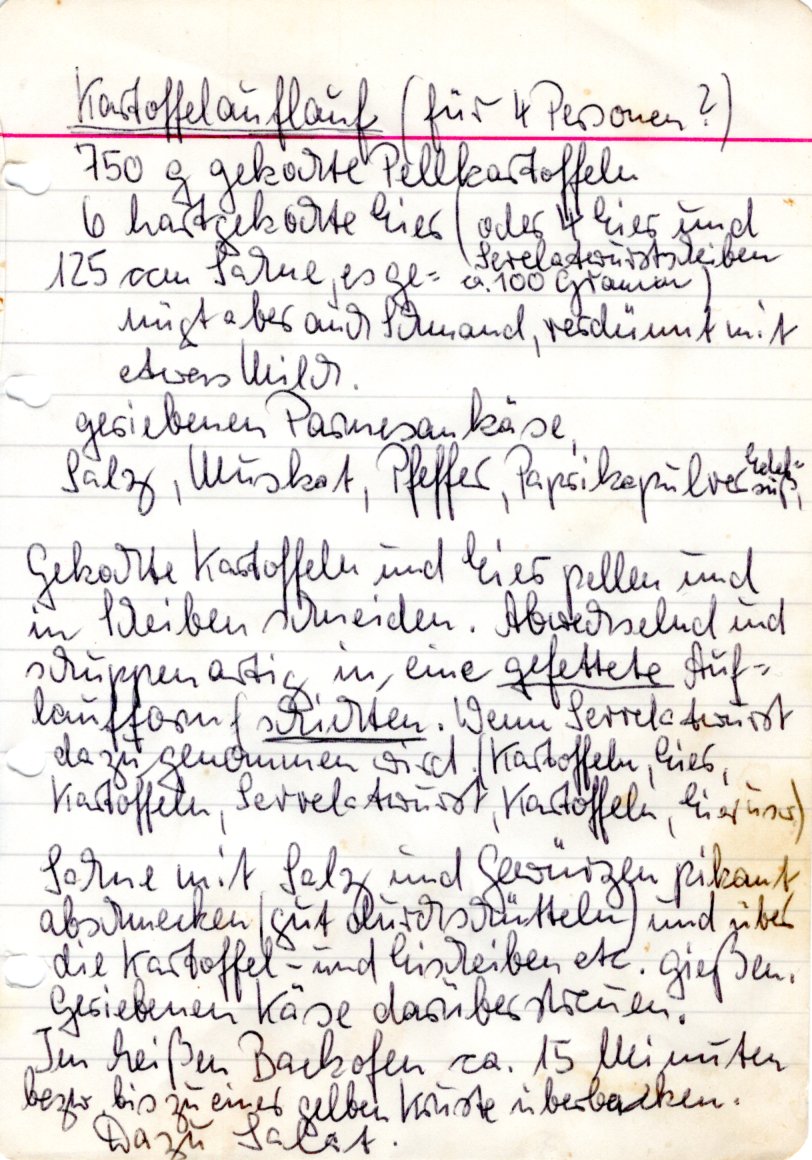 Kartoffelauflauf (für 4 Personen?)
750 g gekochte Pellkartoffeln
6 hartgekochte Eier (oder 4 Eier und
Servelatwurstscheiben
ca. 100 Gramm)
125 ccm Sahne, es ge=
nügt aber auch Schmand, verdünnt mit
etwas Milch.
geriebenen Parmesankäse,
Salz, Muskat, Pfeffer, Paprikapulver edel=
süß,
Gekochte Kartoffeln und Eier pellen und
in Scheiben schneiden. Abwechselnd und
schuppenartig in eine gefettete Auf=
laufform schichten. Wenn Servelatwurst
dazu genommen wird (Kartoffeln, Eier,
Kartoffeln, Servelatwurst, Kartoffeln, Eier usw)
Sahne mit Salz und Gewürzen pikant
abschmecken (gut durchschütteln) und über
die Kartoffel- und Eischeiben etc. gießen.
Geriebenen Käse darüberstreuen.
Im heißen Backofen ca. 15 Minuten
bezw. bis zu einer gelben Kruste überbacken.
Dazu Salat.